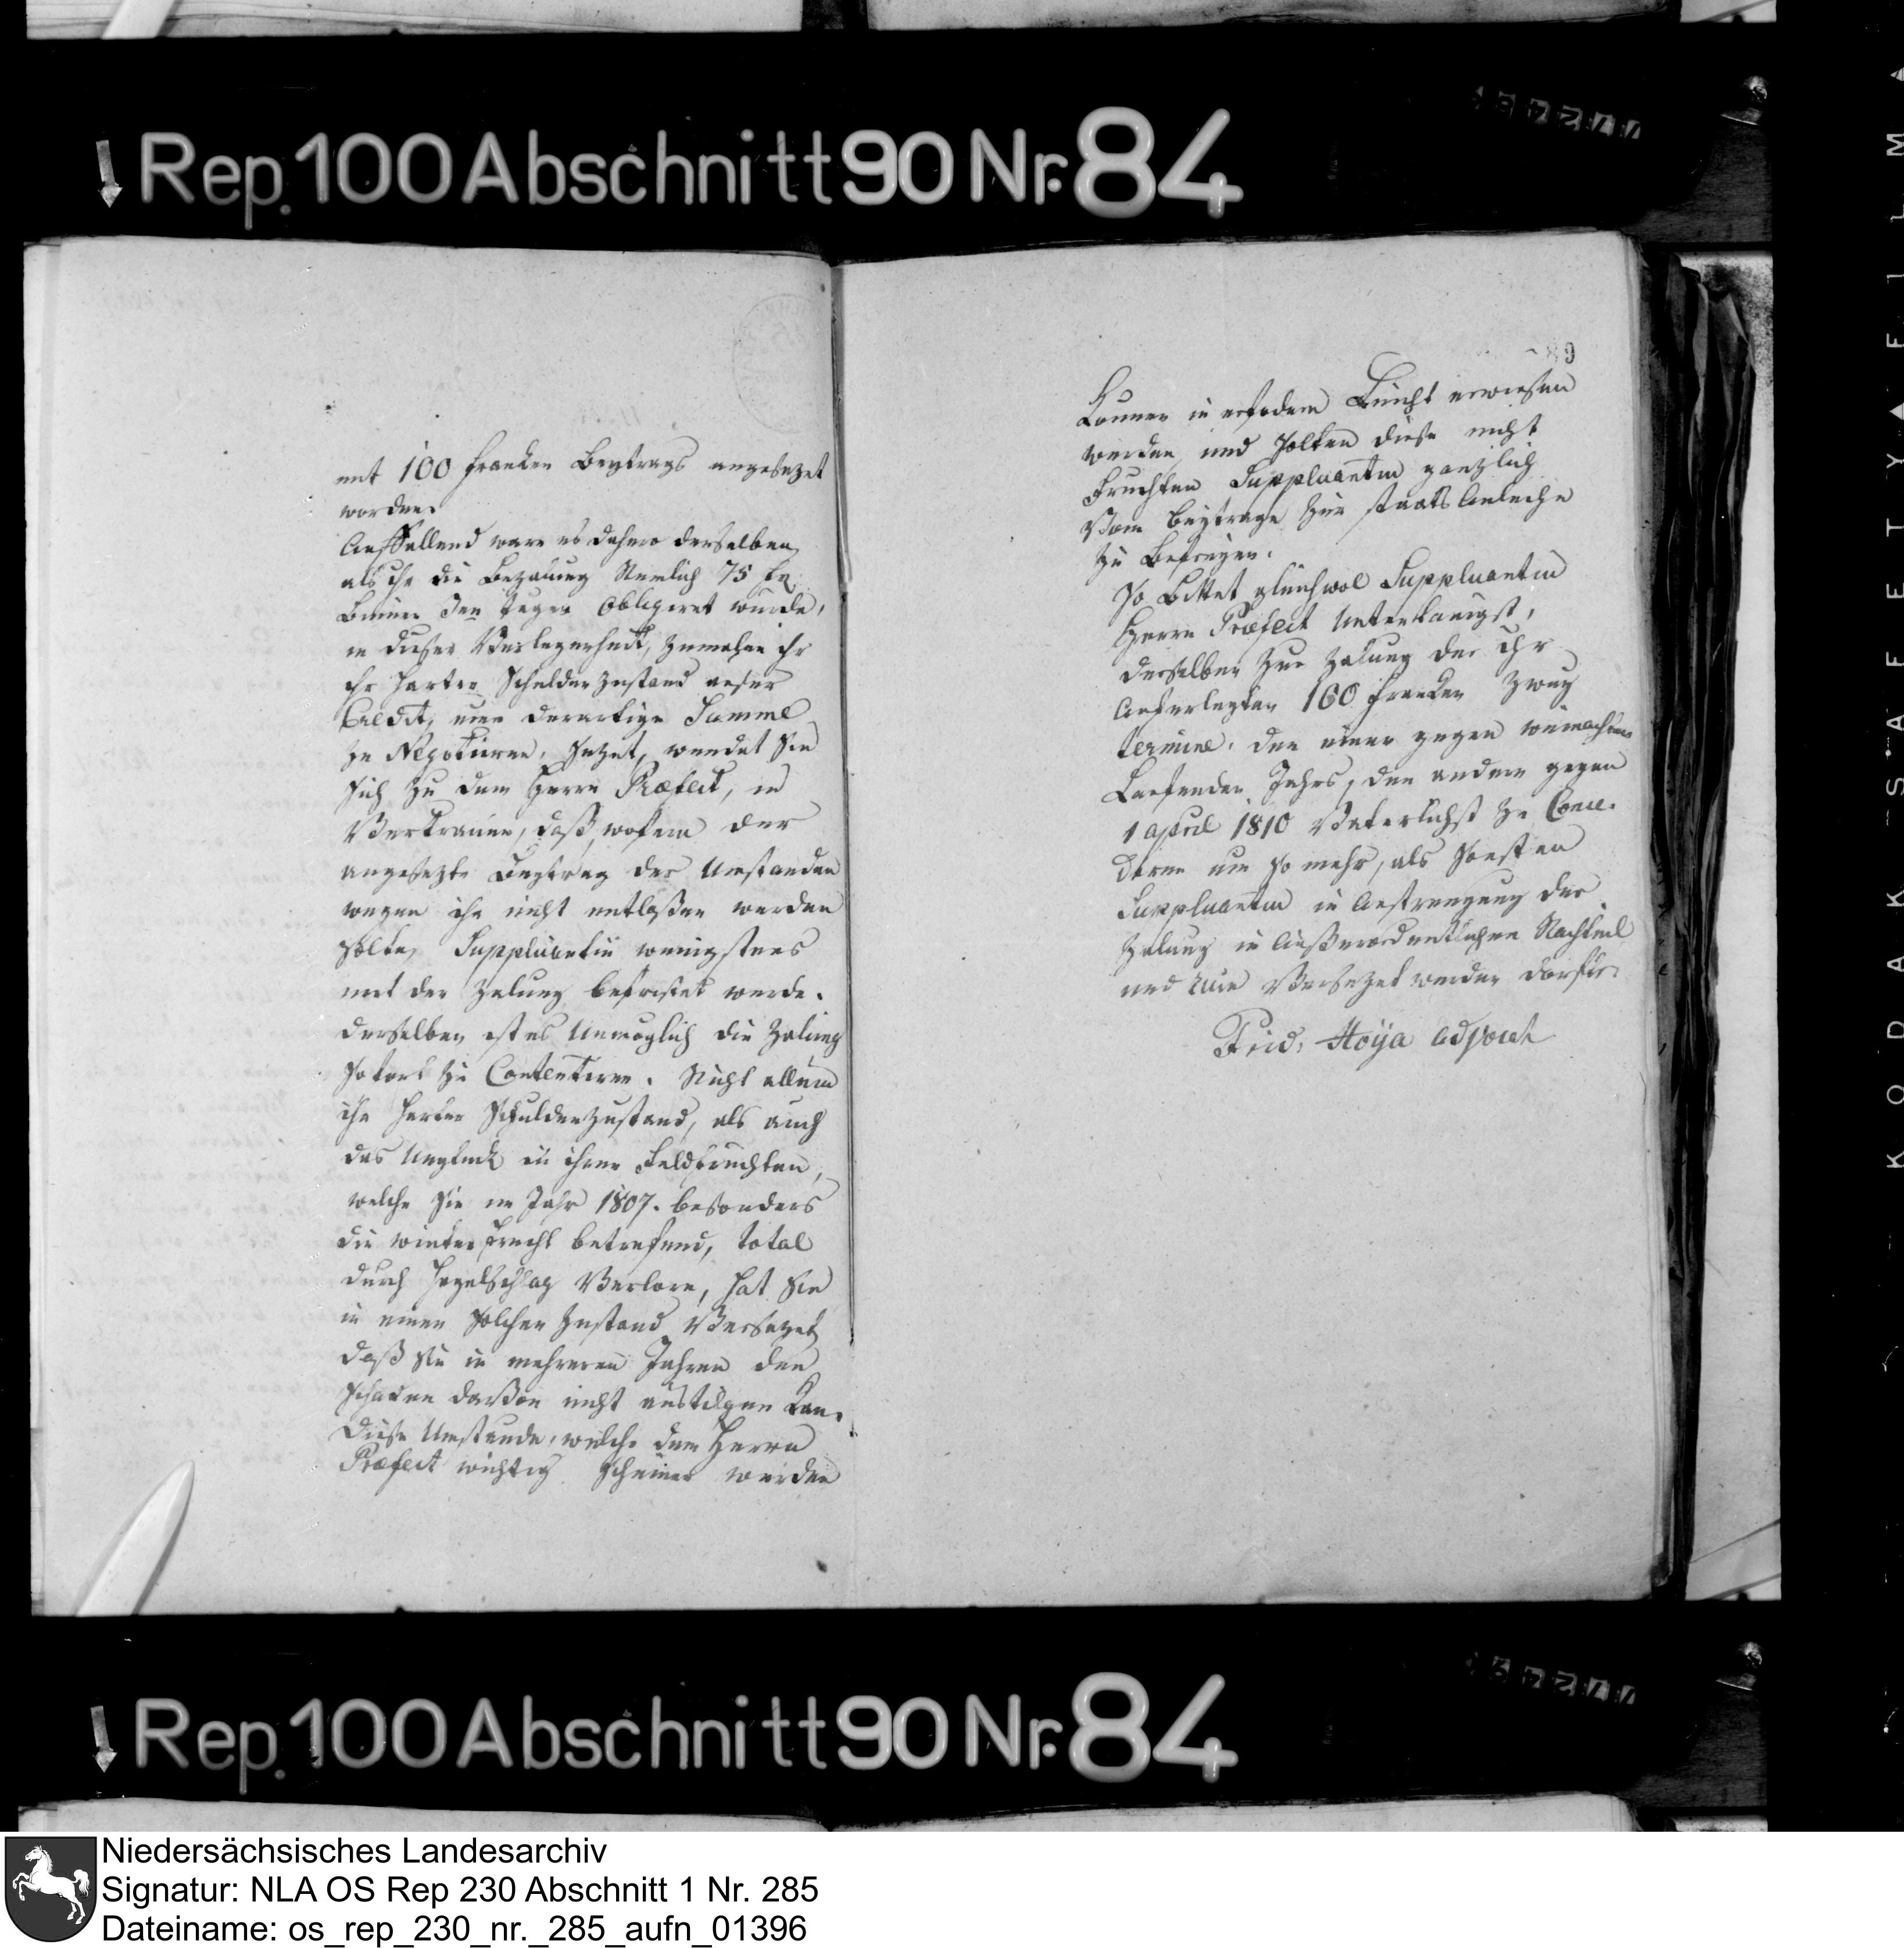 Rep. 100 Abschnitt 90 Nr. 84
mit 100 franken Beytrags angesezet
worden.
Auffallend ware es dahero derselben,
als ihr die Bezalung Nemlich 75 fr.
Binnen 3en tagen Obligiret wurde,
in dieser Verlegenheit, zumahlen ihr
ihr harter Schulden zustand auser
Credit, eine derartige Summe
zu Negotiiren. Jezet, wendet Sie
sich zu dem Herrn Præfect, in
Vertrauen, daß, wofern der
angesezte Beytrag der Umstanden
wegen ihr nicht entlaßen werden
solte, Supplicantin wenigstens
mit der Zalung befristet werde.
derselben ist es Unmöglich die Zalung
sofort zu Contentiren. Nicht allein
ihr harter Schuldenzustand, als auch
das Ungluck in ihren Feldfruchten,
welche Sie im Jahr 1807. besonders
die winter frucht betrefend, total
durch Hagelschlag Verloren, hat Sie
in einen solchen Zustand Versezet,
daß Sie in mehreren Jahren den
schaden davon nicht austilgen Kan.
Diese Umstande, welche dem Herrn
Præfect wichtig scheinen werden
89
Konnen in erfodern Leicht erwiesen
werden, und solten diese nicht
Fruchten Supplicantin ganzlich
Vom beytrage zur staats Anleihe
zu Befreyen.
So Bittet gleichwol Supplicantin
Herrn Præfect Unterthanigst,
derselben zur Zalung der ihr
Auferlegten 160 franken zwey
termine, den einen gegen weinachten
Laufenden Jahrs, den andern gegen
1 april 1810 Vaterlichst zu Conce-
diren um so mehr, als sonsten
Supplicantin in Anstrengung der
Zalung in Außerordentlichen Nachteil
und ruin Versezet werden dörfte.
Frid. Hoya Advocat
Rep. 100 Abschnitt 90 Nr. 84
KODAK SAFETY FILM
Niedersächsisches Landesarchiv
Signatur: NLA OS Rep 230 Abschnitt 1 Nr. 285
Dateiname: os_rep_230_nr._285_aufn_01396